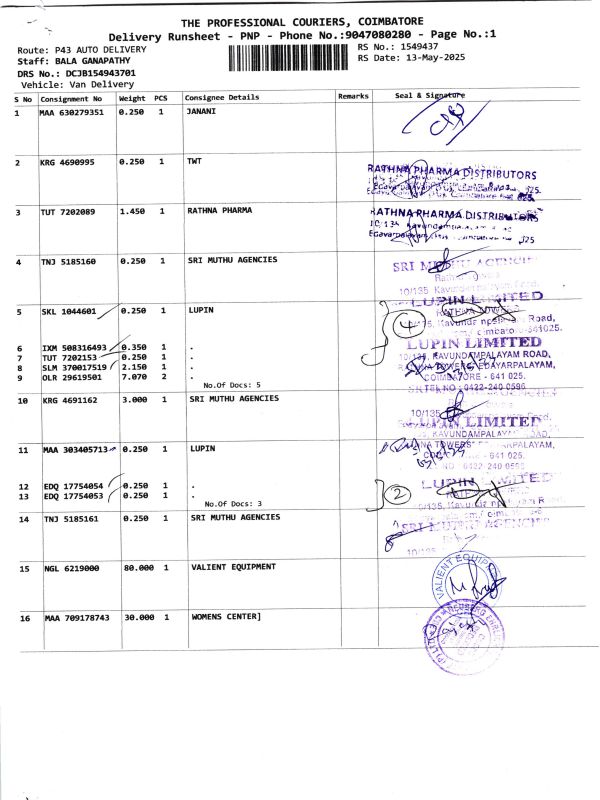 THE PROFESSIONAL COURIERS, COIMBATORE
Delivery Runsheet - PNP - Phone No.:9047080280 - Page No.:1
Route: P43 AUTO DELIVERY
RS No.: 1549437
Staff: BALA GANAPATHY
RS Date: 13-May-2025
DRS No.: DCJB154943701
Vehicle: Van Delivery
S No Consignment No Weight PCS Consignee Details Remarks Seal & Signature
1 MAA 630279351 0.250 1 JANANI
2 KRG 4690995 0.250 1 TWT
RATHNA PHARMA DISTRIBUTORS
3 TUT 7202089 1.450 1 RATHNA PHARMA
RATHNA PHARMA DISTRIBUTORS
4 TNJ 5185160 0.250 1 SRI MUTHU AGENCIES
SRI MUTHU AGENCIE
5 SKL 1044601 0.250 1 LUPIN
LUPIN LIMITED
4
6 IXM 508316493 0.350 1 .
LUPIN LIMITED
7 TUT 7202153 0.250 1 .
10/135, KAVUNDAMPALAYAM ROAD,
8 SLM 370017519 2.150 1 .
EDAYARPALAYAM,
9 OLR 29619501 7.070 2 .
COIMBATORE - 641 025.
No.Of Docs: 5
0422-240 0586
10 KRG 4691162 3.000 1 SRI MUTHU AGENCIES
LIMITED
11 MAA 303405713 0.250 1 LUPIN
12 EDQ 17754054 0.250 1 .
LUPIN
13 EDQ 17754053 0.250 1 .
2
No.Of Docs: 3
14 TNJ 5185161 0.250 1 SRI MUTHU AGENCIES
SRI MUTHU AGENCIE
15 NGL 6219000 80.000 1 VALIENT EQUIPMENT
VALIENT EQUIP
16 MAA 709178743 30.000 1 WOMENS CENTER]